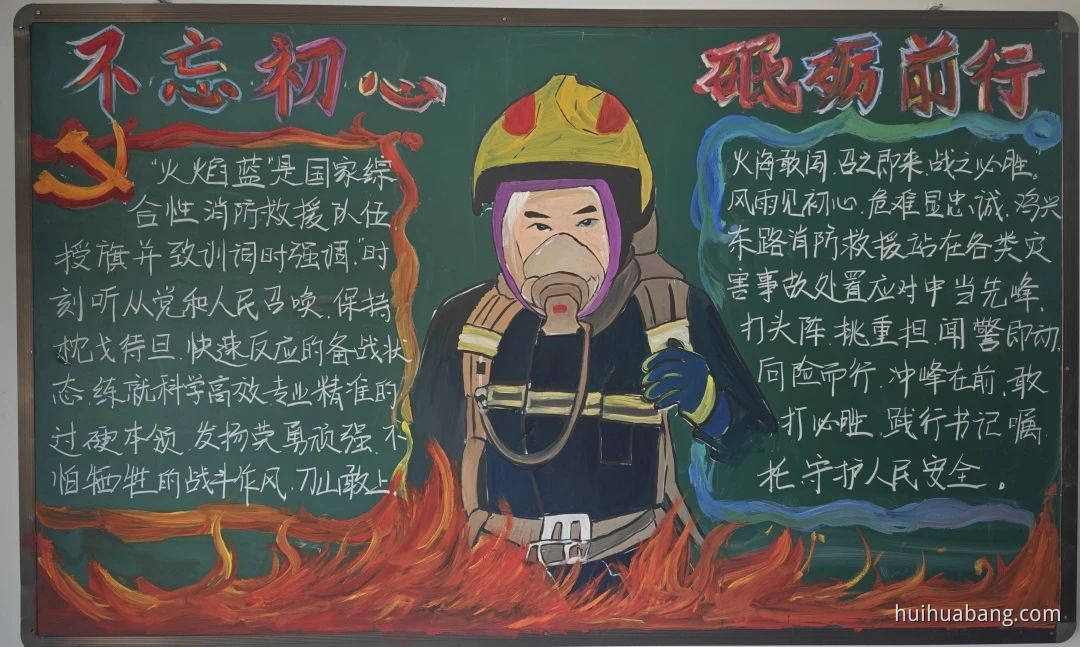 不忘初心
砥砺前行
“火焰蓝”是国家综
合性消防救援队伍
授旗并致训词时强调,“时
刻听从党和人民召唤,保持
枕戈待旦,快速反应的备战状
态,练就科学高效专业精准的
过硬本领,发扬英勇顽强,不
怕牺牲的战斗作风,刀山敢上,
火海敢闯,召之即来,战之必胜。”
风雨见初心,危难显忠诚,鸡兴
东路消防救援站在各类灾
害事故处置应对中当先峰,
打头阵,挑重担,闻警即动,
向险而行,冲峰在前,敢
打必胜,践行书记嘱
托,守护人民安全。
huihuabang.com